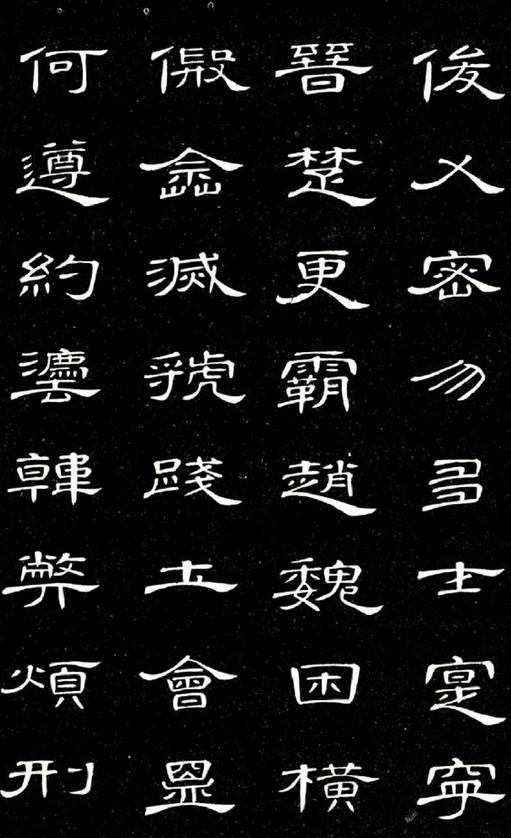 俊乂密勿多士寔寧
晉楚更霸趙魏困橫
假途滅虢踐土會盟
何遵約灋韓弊煩刑